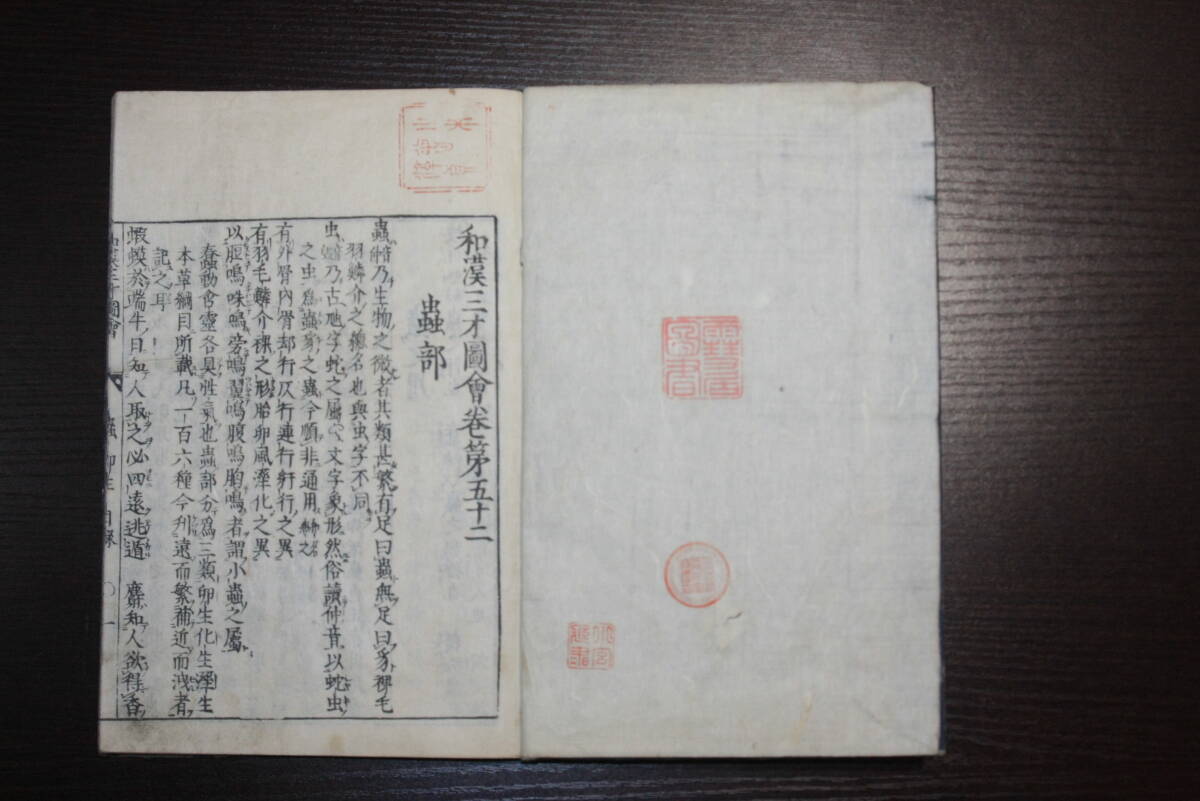 和漢三才圖會卷第五十二
蟲部
蟲乃生物之微者其類甚繁有足曰蟲無足曰豸裸毛
羽鱗介之總名也與虫字不同
虫乃古虺字蛇之屬文字象形然俗讀仲音以蛇虫
之虫為蟲豸之蟲今順非通用
有外骨內骨却行仄行連行紆行之異
有羽毛鱗介裸之形胎卵風溼化之異
以脰鳴咮鳴旁鳴翼鳴腹鳴胸鳴者謂小蟲之屬
蠢動含靈各具性氣也蟲部分爲三類卵生化生溼生
本草綱目所載凡一百六種今刋遠而繁補近而洩者
記之耳
蝦蟆於端午日知人取之必四遠逃遁 麝知人欲得香
和漢三才圖會 蟲 卵生 目録 〇 一